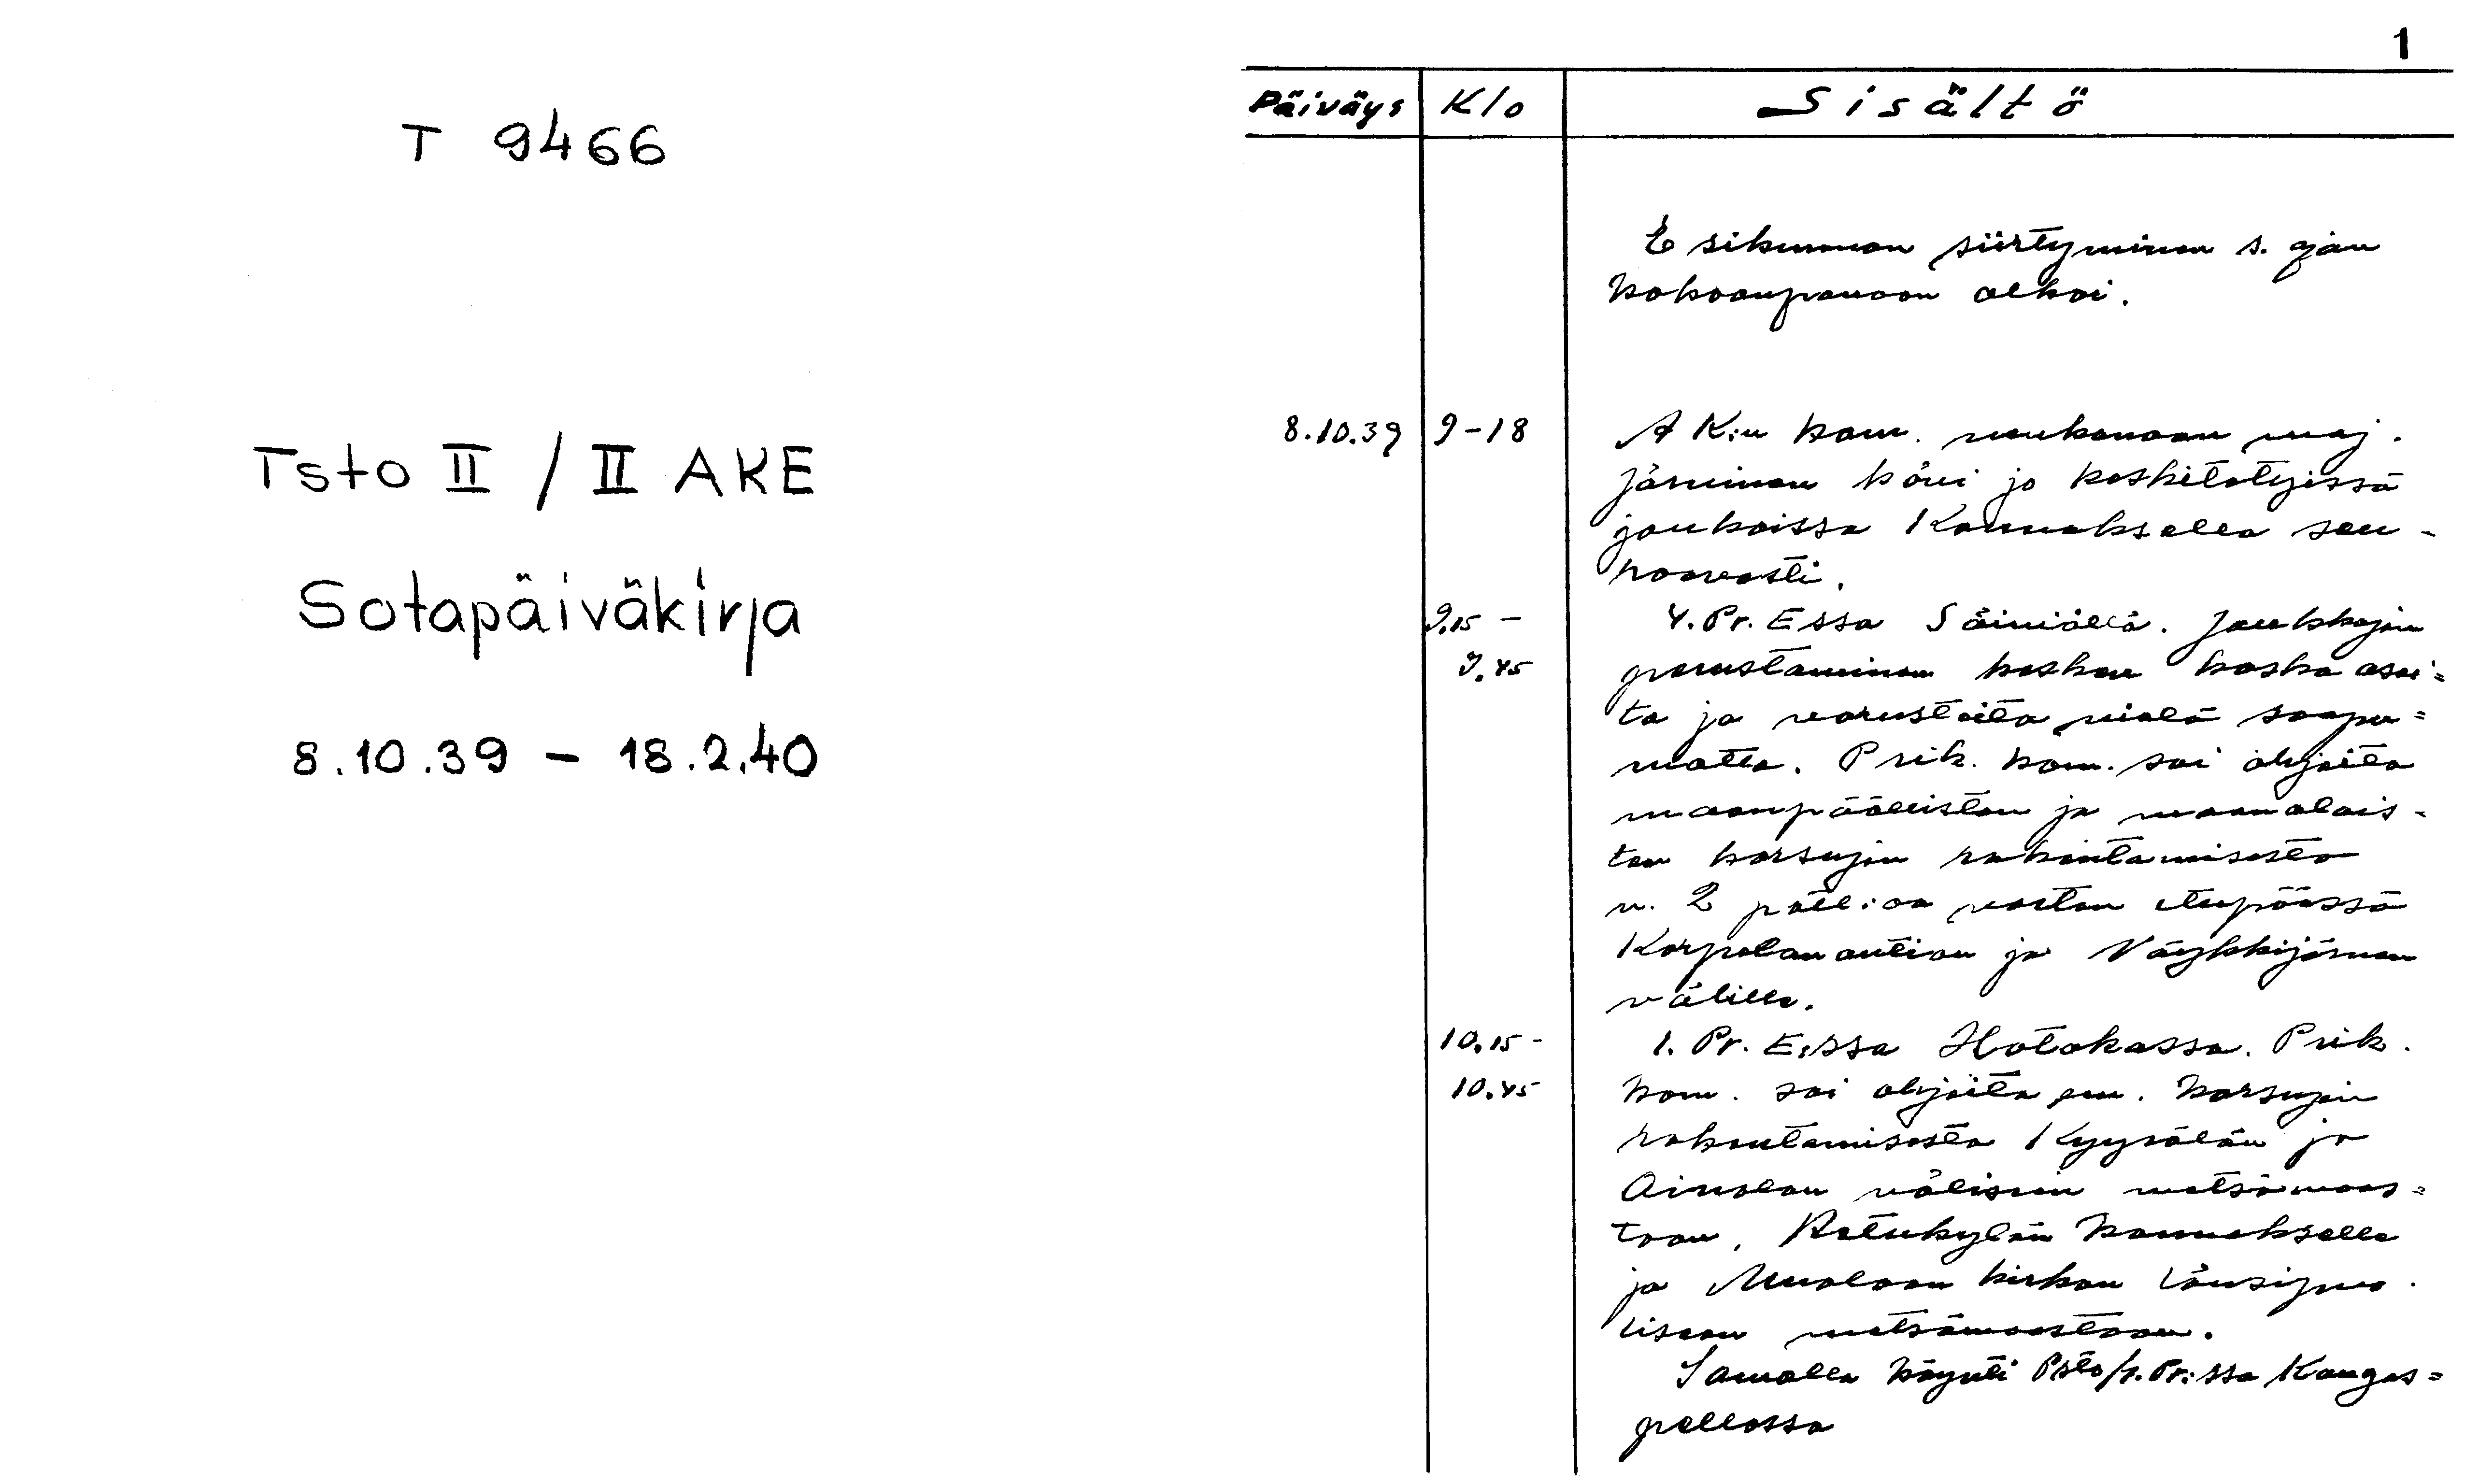 T 9466
Tsto II / II AKE
Sotapäiväkirja
8.10.39 - 18.2.40
1
Päiväys Klo Sisältö
Esikunnan siirtyminen s. ajan
kokoonpanoon alkoi.
8.10.39 9-18 AK:n kom. mukanaan maj.
Järvinen kävi jo keskitetyissä
joukoissa Kannaksella seu-
raavasti.
9.15 - 4. Pr. Essa Säiniöllä. Joukkojen
9.45 perustaminen kesken koska asei=
ta ja varusteita vielä saapu=
matta. Prik. kom. sai ohjeita
maanpäällisten ja maanalais-
ten korsujen rakentamisesta
n. 2 patl:aa varten etupäässä
Karpelanaution ja Näykkijärven
välille.
10.15 - 1. Pr. E:ssa Hotakassa. Prik.
10.45 kom. sai ohjeita em. korsujen
rakentamisesta Kyyrölän ja
Ainolan välisiin metsämaas=
toon, Kannakselle
ja Muolaan kirkon länsipuo-
liseen metsämaastoon.
Samalla käynti Psto/1. Pr:ssa Kangas=
pellossa